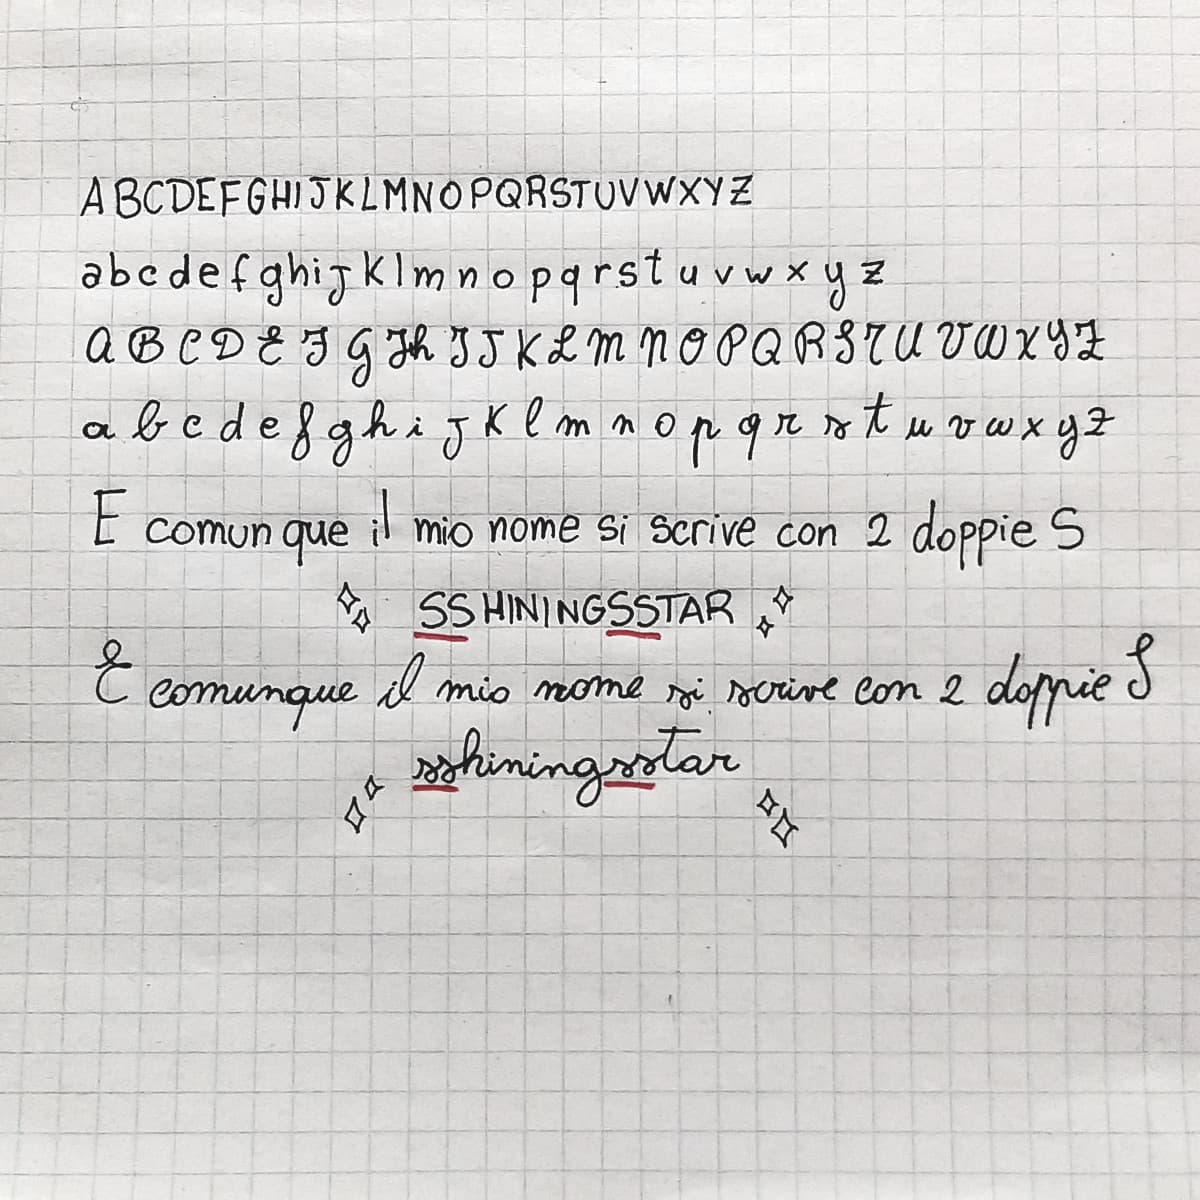 ABCDEFGHIJKLMNOPQRSTUVWXYZ
abcdefghijklmnopqrstuvwxyz
ABCDEFGHIJKLMNOPQRSTUVWXYZ
abcdefghijklmnopqrstuvwxyz
E comunque il mio nome si scrive con 2 doppie S
SSHININGSSTAR
E comunque il mio nome si scrive con 2 doppie S
sshiningsstar